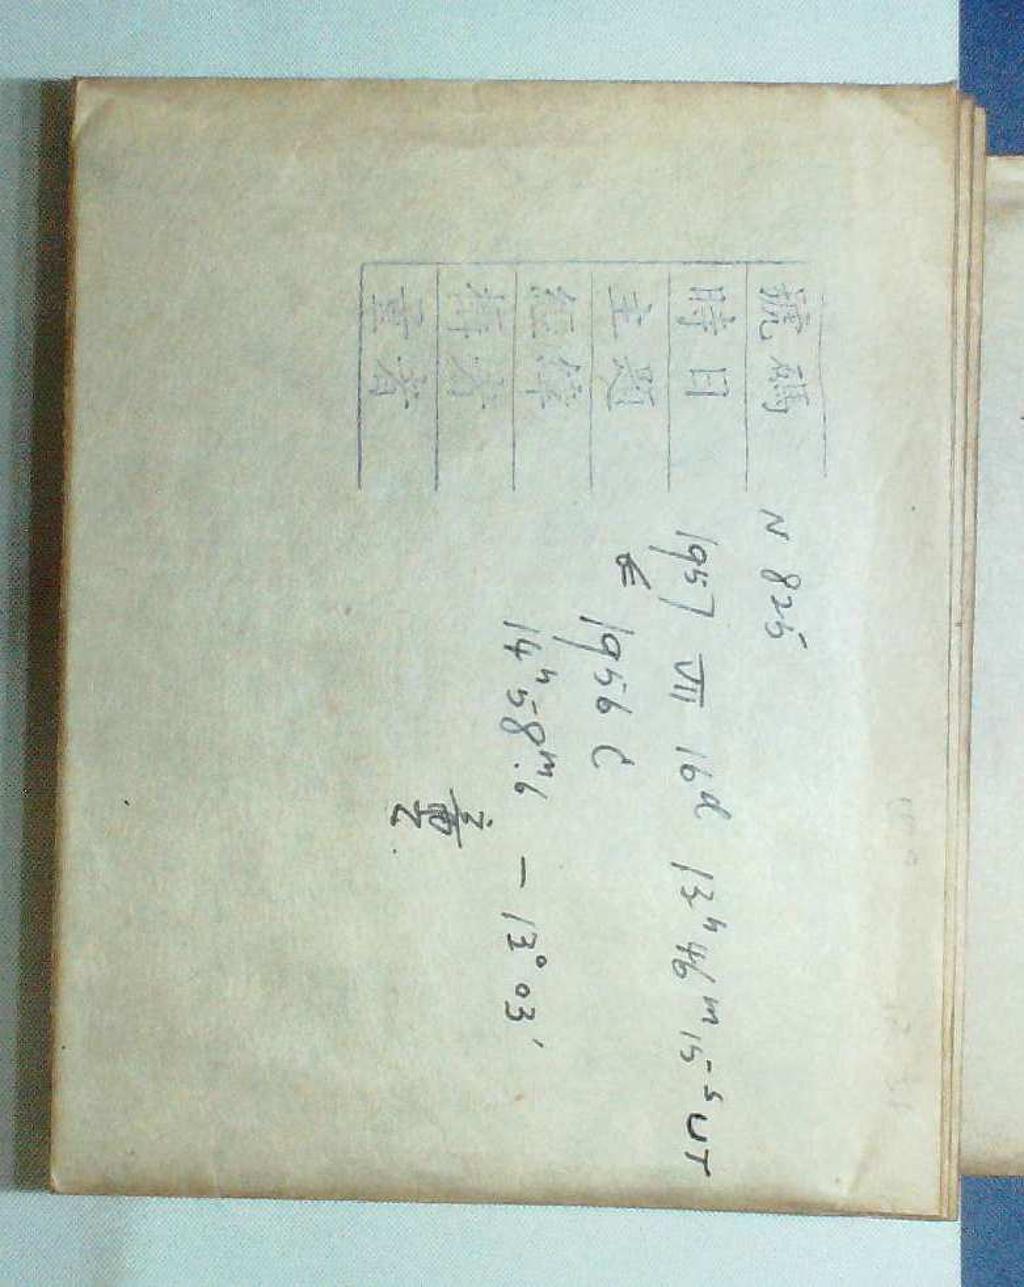 號碼 N 825
時日 1957 VII 16d 13h 46m 15s UT
主題 1956 C
經緯 14h 58m.6 — 13° 03′
者
量者